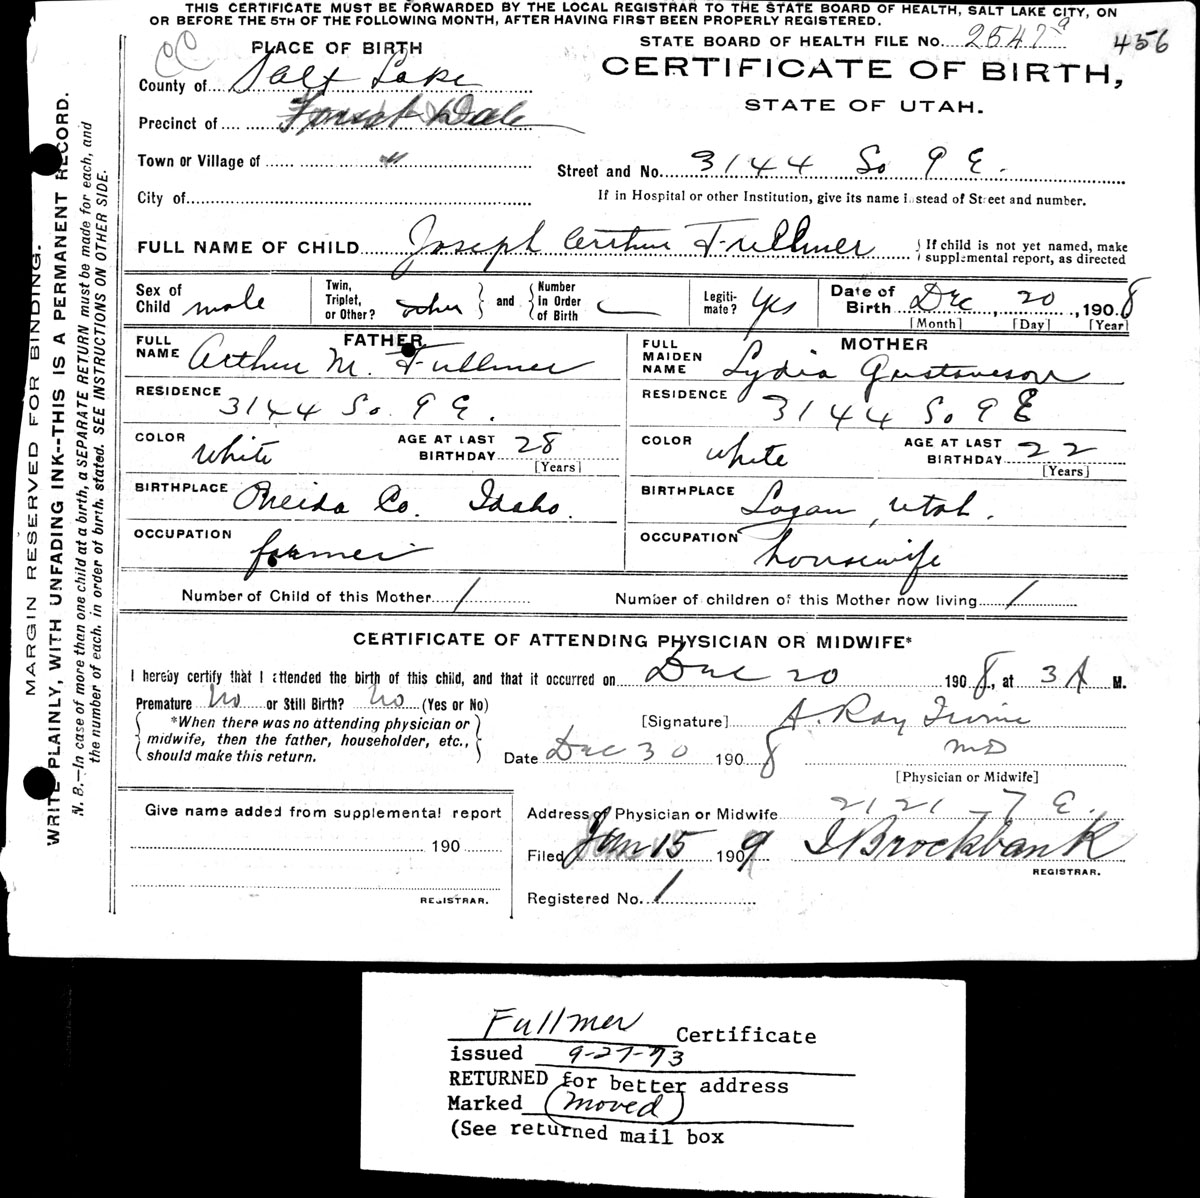 THIS CERTIFICATE MUST BE FORWARDED BY THE LOCAL REGISTRAR TO THE STATE BOARD OF HEALTH, SALT LAKE CITY, ON
OR BEFORE THE 5TH OF THE FOLLOWING MONTH, AFTER HAVING FIRST BEEN PROPERLY REGISTERED.
CC
PLACE OF BIRTH
STATE BOARD OF HEALTH FILE No. 2547 a 456
County of Salt Lake
CERTIFICATE OF BIRTH,
STATE OF UTAH.
Precinct of Forest Dale
Town or Village of "
Street and No. 3144 So 9 E.
City of
If in Hospital or other Institution, give its name instead of Street and number.
FULL NAME OF CHILD Joseph Arthur Fullmer
If child is not yet named, make
supplemental report, as directed
Sex of Child male
Twin, Triplet, or Other? other and Number In Order of Birth
Legiti-mate? Yes
Date of Birth Dec, 20, 1908
[Month] [Day] [Year]
FATHER
FULL NAME Arthur M. Fullmer
RESIDENCE 3144 So. 9 E.
COLOR white AGE AT LAST BIRTHDAY 28
[Years]
BIRTHPLACE Oneida Co. Idaho.
OCCUPATION farmer
MOTHER
FULL MAIDEN NAME Lydia Gustaveson
RESIDENCE 3144 So 9 E
COLOR white AGE AT LAST BIRTHDAY 22
[Years]
BIRTHPLACE Logan, Utah.
OCCUPATION housewife
Number of Child of this Mother 1 Number of children of this Mother now living 1
CERTIFICATE OF ATTENDING PHYSICIAN OR MIDWIFE*
I hereby certify that I attended the birth of this child, and that it occurred on Dec 20 1908, at 3 A M.
Premature No or Still Birth? No (Yes or No)
*When there was no attending physician or
midwife, then the father, householder, etc.,
should make this return.
[Signature] A. Ray Irvine
MD
Date Dec 30 1908
[Physician or Midwife]
Give name added from supplemental report
190
REGISTRAR.
Address of Physician or Midwife 2121 - 7 E.
Filed Jan 15 1909 I Brockbank
REGISTRAR.
Registered No. 1
MARGIN RESERVED FOR BINDING.
WRITE PLAINLY, WITH UNFADING INK--THIS IS A PERMANENT RECORD.
N. B.—In case of more than one child at a birth, a SEPARATE RETURN must be made for each, and
the number of each, in order of birth, stated. SEE INSTRUCTIONS ON OTHER SIDE.
Fullmer Certificate
issued 9-27-73
RETURNED for better address
Marked (moved)
(See returned mail box